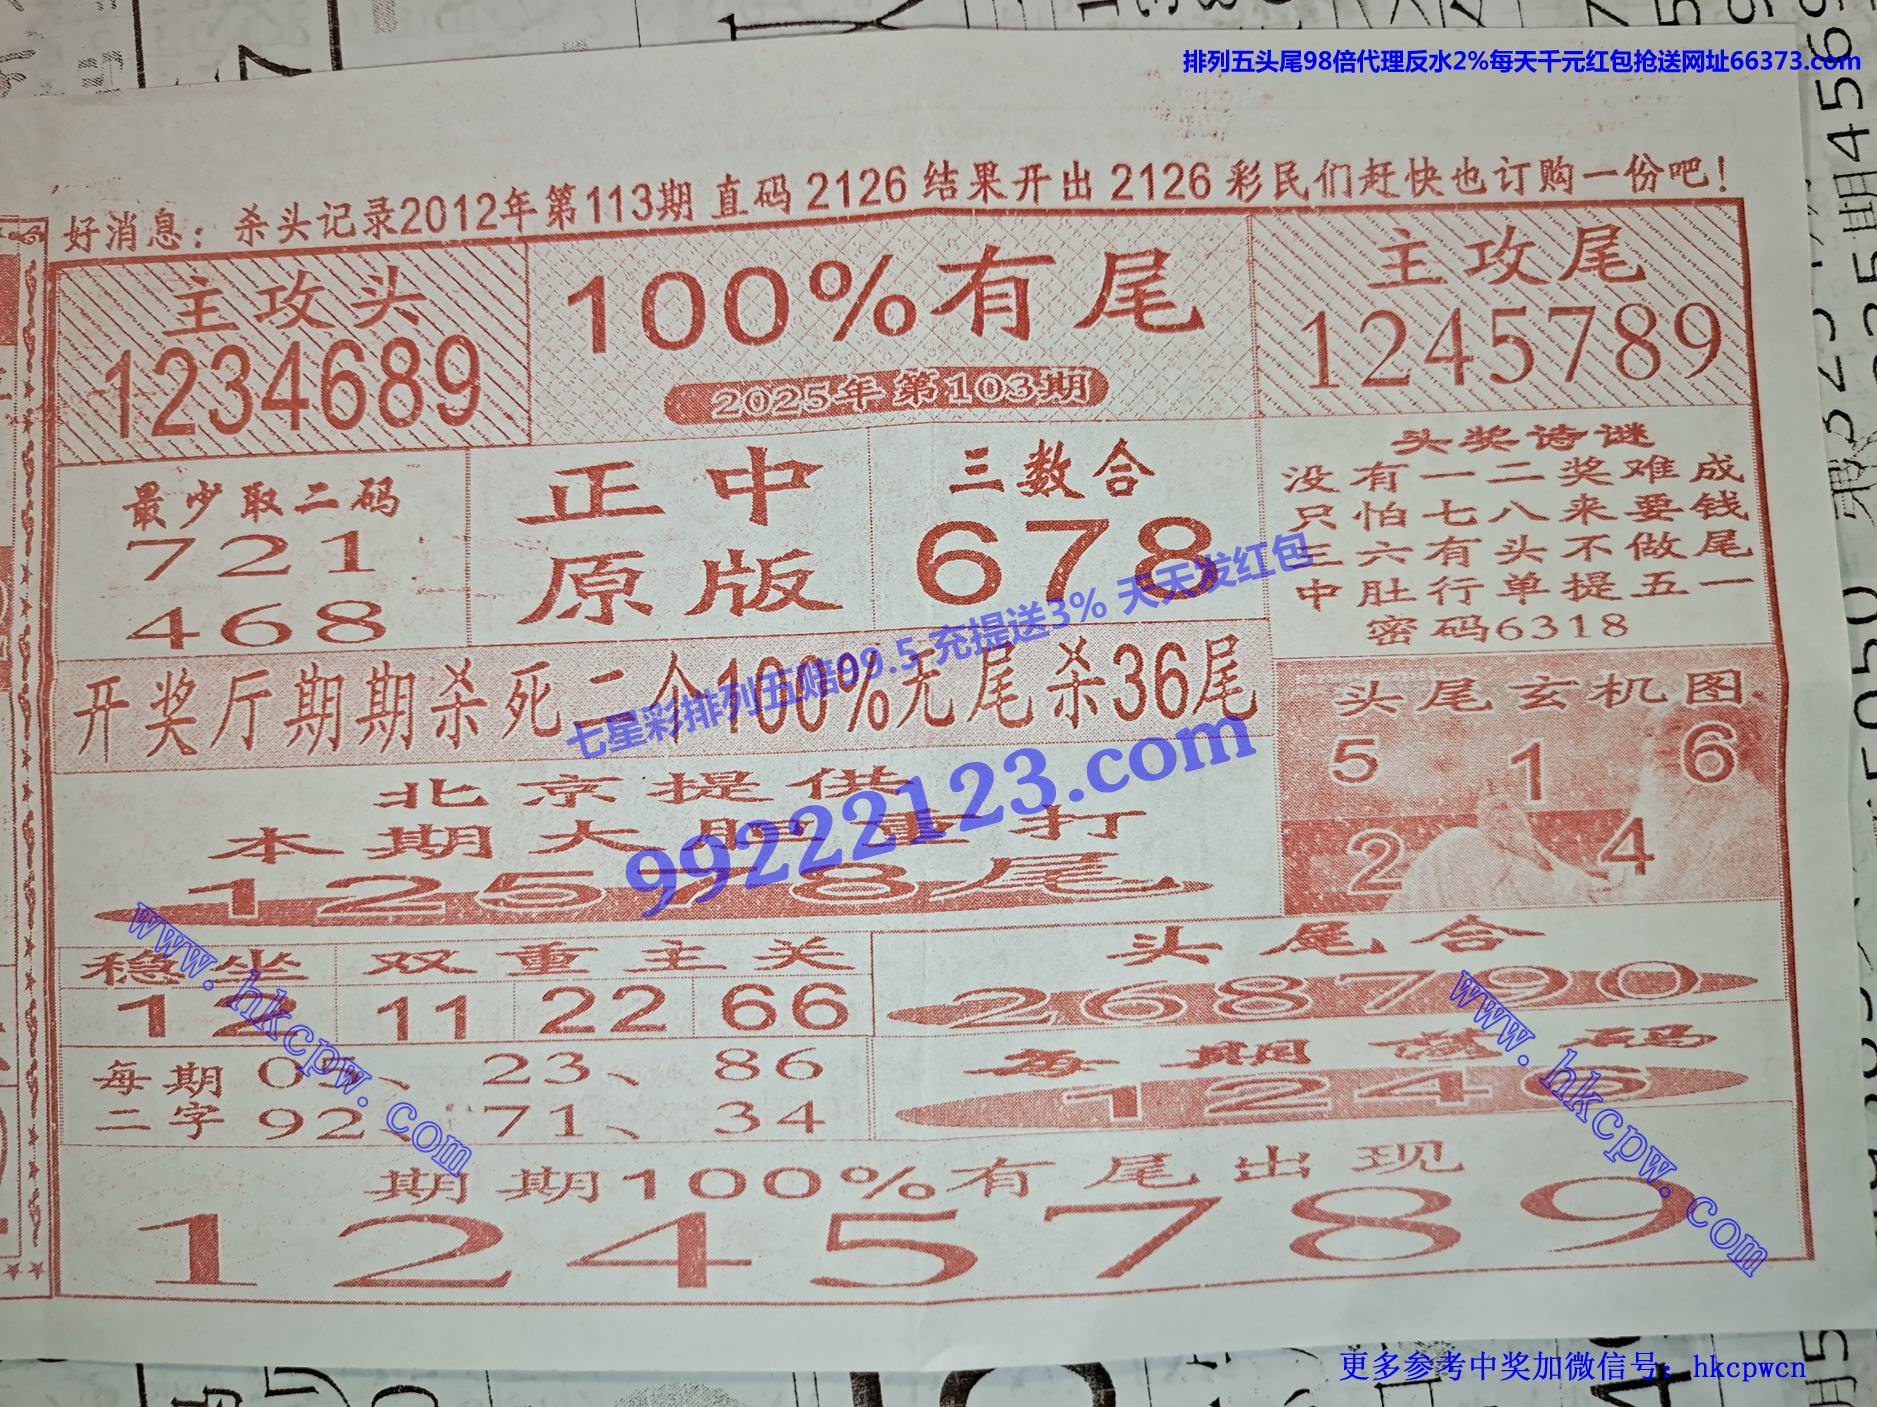 排列五头尾98倍代理反水2%每天千元红包抢送网址66373.com
好消息：杀头记录2012年第113期 直码 2126 结果开出 2126 彩民们赶快也订购一份吧！
主攻头
1234689
100%有尾
2025年第103期
主攻尾
1245789
最少取二码
721
468
正中
原版
三数合
678
头奖诗谜
没有一二奖难成
只怕七八来要钱
三六有头不做尾
中肚行单提五一
密码6318
开奖厅期期杀死二个100%无尾杀36尾
七星彩排列五赔99.5 充提送3% 天天发红包
99222123.com
头尾玄机图
5 1 6
2 4
北京提供
本期大胆重打
12578尾
稳坐
12
双重主关
11 22 66
头尾合
268790
每期
二字
05、23、86
92、71、34
每期 码
1246
www.hkcpw.com
www.hkcpw.com
期期100%有尾出现
1245789
更多参考中奖加微信号：hkcpwcn